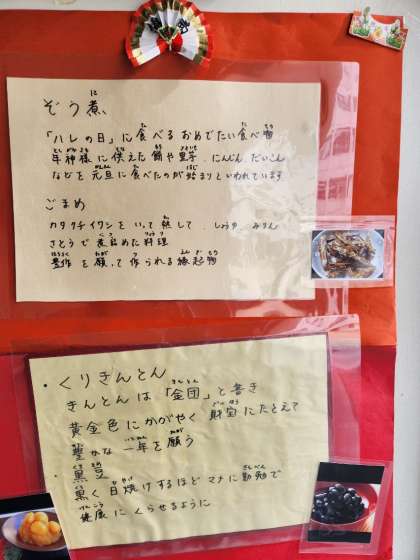 ぞう煮
「ハレの日」に食べるおめでたい食べ物
年神様に供えた餅や里芋、にんじん、だいこん
などを元旦に食べたのが始まりといわれています
ごまめ
カタクチイワシをいって熱して、しょうゆ、みりん
さとうで煮詰めた料理
豊作を願って作られる縁起物
・くりきんとん
きんとんは「金団」と書き
黄金色にかがやく財宝にたとえて
豊かな一年を願う
・黒豆
黒く日焼けするほどマメに勤勉で
健康にくらせるように